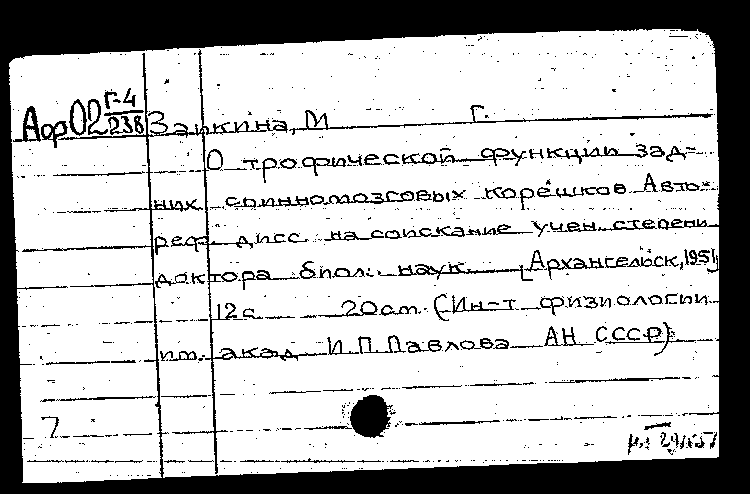 Аор02 Г-4/238 Заикина, М Г.
О трофической функции зад-
них спинномозговых корешков Авто-
реф. дисс. на соискание учен. степени
доктора биол. наук. [Архангельск, 1951]
12с 20см. (Ин-т физиологии
им. акад И.П.Павлова АН СССР)
7